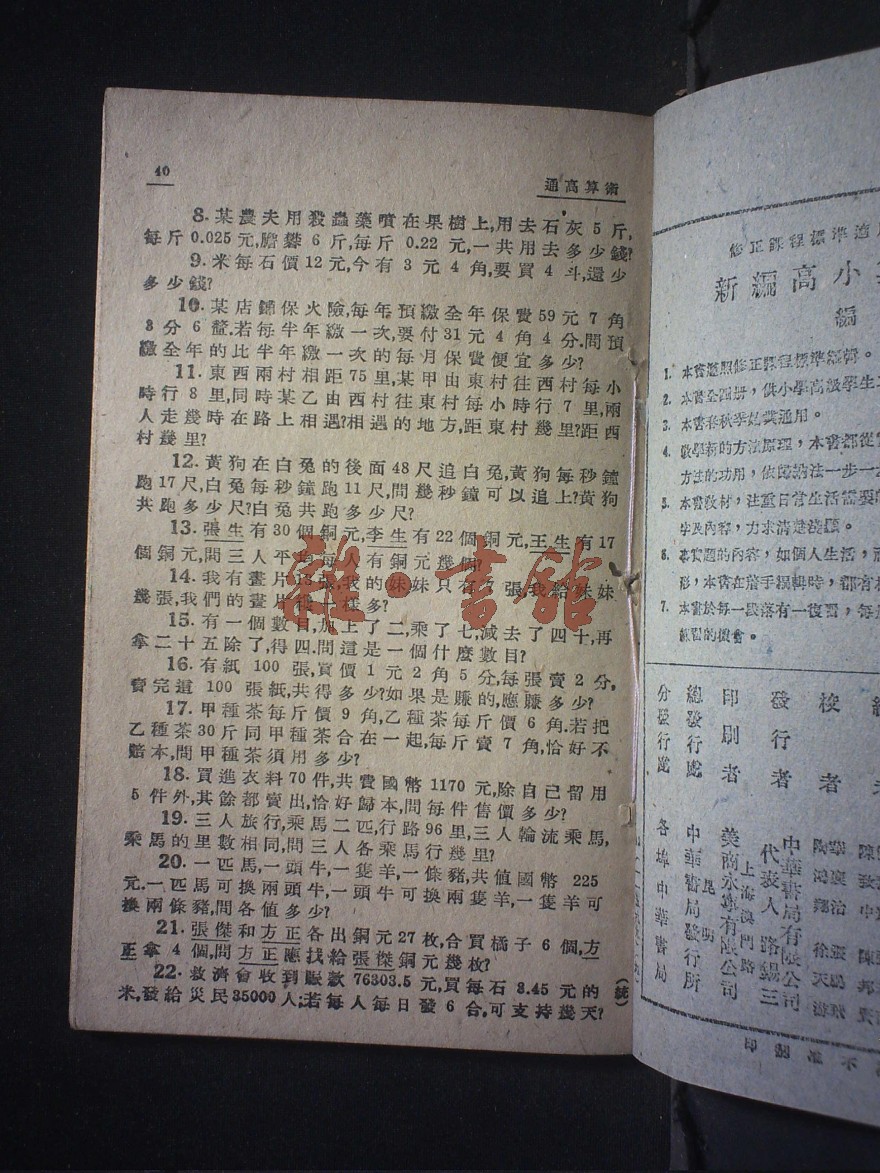 40
通高算術
8. 某農夫用殺蟲藥噴在果樹上,用去石灰 5 斤,
每斤 0.025 元,膽礬 6 斤,每斤 0.22 元,一共用去多少錢?
9. 米每石價12元,今有 3 元 4 角,要買 4 斗,還少
多少錢?
10. 某店鋪保火險,每年預繳全年保費59元 7 角
8 分 6 釐.若每半年繳一次,要付31元 4 角 4 分.問預
繳全年的比半年繳一次的每月保費便宜多少?
11. 東西兩村相距75里,某甲由東村往西村每小
時行 8 里,同時某乙由西村往東村每小時行 7 里,兩
人走幾時在路上相遇?相遇的地方,距東村幾里?距西
村幾里?
12. 黃狗在白兔的後面48尺追白兔,黃狗每秒鐘
跑17尺,白兔每秒鐘跑11尺,問幾秒鐘可以追上?黃狗
共跑多少尺?白兔共跑多少尺?
13. 張生有30個銅元,李生有22個銅元,王生有17
個銅元,問三人平均每人有銅元幾個?
14. 我有畫片18張,我的妹妹只有 張,我給妹妹
幾張,我們的畫片 一樣多?
15. 有一個數目,加上了二,乘了七,減去了四十,再
拿二十五除了,得四.問這是一個什麼數目?
16. 有紙 100 張,買價 1 元 2 角 5 分,每張賣 2 分,
賣完這 100 張紙,共得多少?如果是賺的,應賺多少?
17. 甲種茶每斤價 9 角,乙種茶每斤價 6 角.若把
乙種茶30斤同甲種茶合在一起,每斤賣 7 角,恰好不
賠本,問甲種茶須用多少?
18. 買進衣料70件,共費國幣 1170 元,除自已留用
5 件外,其餘都賣出,恰好歸本,問每件售價多少?
19. 三人旅行,乘馬二匹,行路96里,三人輪流乘馬,
乘馬的里數相同,問三人各乘馬行幾里?
20. 一匹馬,一頭牛,一隻羊,一條豬,共值國幣 225
元.一匹馬可換兩頭牛,一頭牛可換兩隻羊,一隻羊可
換兩條豬,問各值多少?
21. 張傑和方正各出銅元27枚,合買橘子 6 個,方
正拿 4 個,問方正應找給張傑銅元幾枚?
22. 救濟會收到賑款 76303.5 元,買每石 8.45 元的
米,發給災民35000人;若每人每日發 6 合,可支持幾天?
(統)
修正課程標準適
新編高小
編
1. 本書遵照修正課程標準編輯。
2. 本書全四册,供小學高級學生
3. 本書春秋季始業通用。
4. 敎學新的方法原理,本書都從
方法的功用,依歸納法一步一
5. 本書敎材,注重日常生活需要
字及內容,力求清楚淺顯。
6. 算題的內容,如個人生活,
形,本書在着手編輯時,都有
7. 本書於每一段落有一復習,每
練習的機會。
校者
發行者 中華書局有限公司
代表人 路錫三
印刷者 上海澳門路
美商永寧有限公司
總發行處 昆明
中華書局發行所
分發行處 各埠中華書局
雜·書館